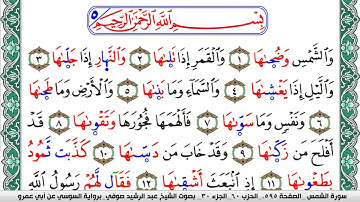 بِسْمِ اللَّهِ الرَّحْمَٰنِ الرَّحِيمِ ٥
وَالشَّمْسِ وَضُحَىٰهَا ١ وَالْقَمَرِ إِذَا تَلَىٰهَا ٢ وَالنَّهَارِ إِذَا جَلَّىٰهَا ٣
وَالَّيْلِ إِذَا يَغْشَىٰهَا ٤ وَالسَّمَآءِ وَمَا بَنَىٰهَا ٥ وَالْأَرْضِ وَمَا طَحَىٰهَا
٦ وَنَفْسٍ وَمَا سَوَّىٰهَا ٧ فَأَلْهَمَهَا فُجُورَهَا وَتَقْوَىٰهَا ٨ قَدْ
أَفْلَحَ مَن زَكَّىٰهَا ٩ وَقَدْ خَابَ مَن دَسَّىٰهَا ١٠ كَذَّبَت ثَّمُودُ
بِطَغْوَىٰهَا ١١ إِذِ انۢبَعَثَ أَشْقَىٰهَا ١٢ فَقَال لَّهُمْ رَسُولُ اللَّهِ
سورة الشمس الصفحة ٥٩٥ الحزب ٦٠ الجزء ٣٠ بصوت الشيخ عبد الرشيد صوفي برواية السوسي عن أبي عمرو